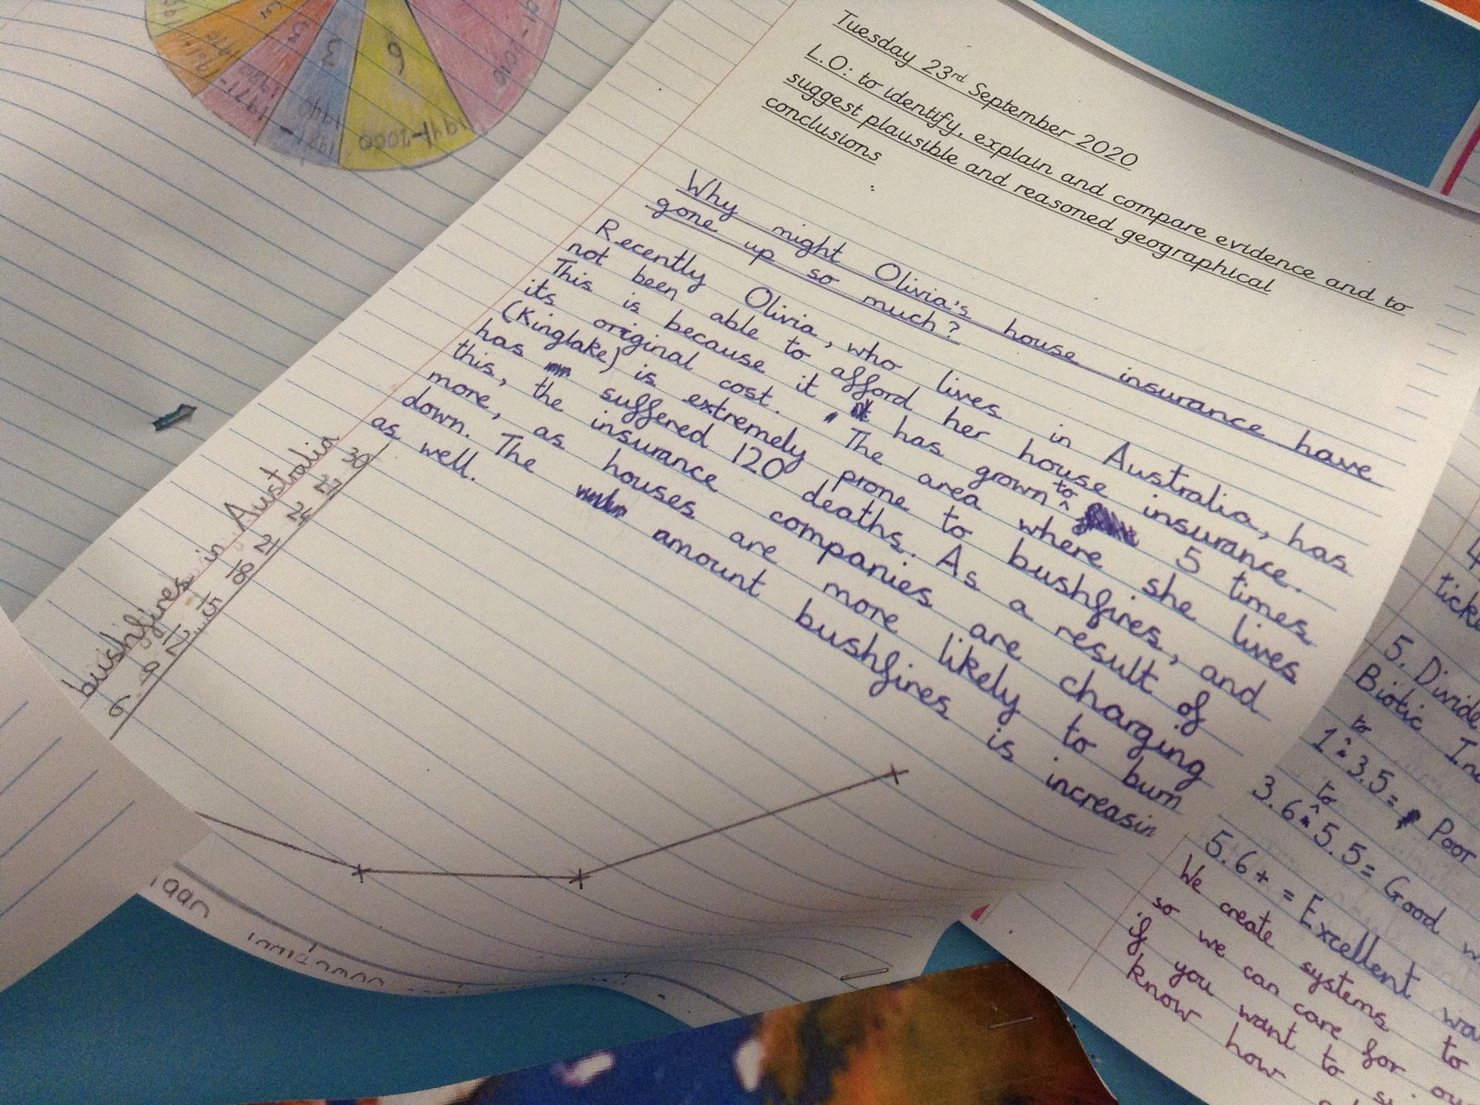 Tuesday 23rd September 2020
L.O: to identify, explain and compare evidence and to
suggest plausible and reasoned geographical
conclusions
Why might Olivia's house insurance have
gone up so much?
Recently Olivia, who lives in Australia, has
not been able to afford her house insurance.
This is because it has grown to 5 times
its original cost. The area where she lives
(Kinglake) is extremely prone to bushfires, and
has suffered 120 deaths. As a result of
this, the insurance companies are charging
more, as houses are more likely to burn
down. The amount bushfires is increasin
as well.
bushfires in Australia
30
27
24
21
18
15
12
9
6
6
1991-2000
3
1981-
1990
5
1971-
5. Divid
Biotic In
1 to 3.5 = Poor
3.6 to 5.5 = Good w
5.6+ = Excellent wa
We create systems to
so we can care for ou
if you want to
know how